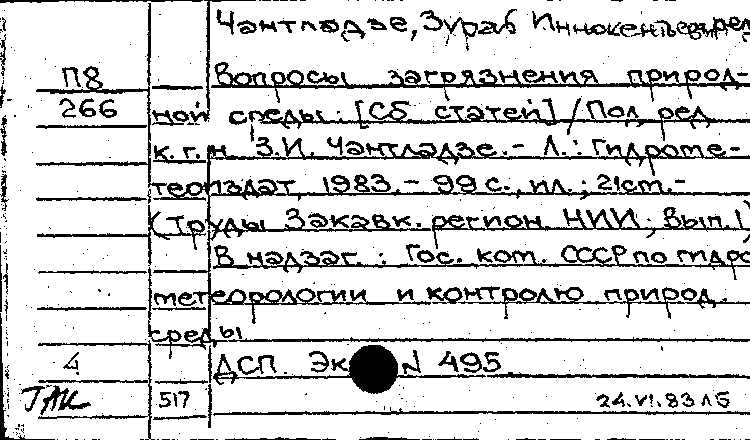 Чантладзе, Зураб Иннокентьевич ред
П8 Вопросы загрязнения природ-
266 ной среды: [Сб статей] / Под ред
к.г.н З.И. Чантладзе.- Л.: Гидроме-
теоиздат, 1983.- 99 с., ил.; 21см.-
(Труды Закавк. регион. НИИ; Вып.1)
В надзаг.: Гос. ком. СССР по гидро
метеорологии и контролю природ.
среды
4 ДСП. Эк N 495
517 24.VI.83 ЛБ